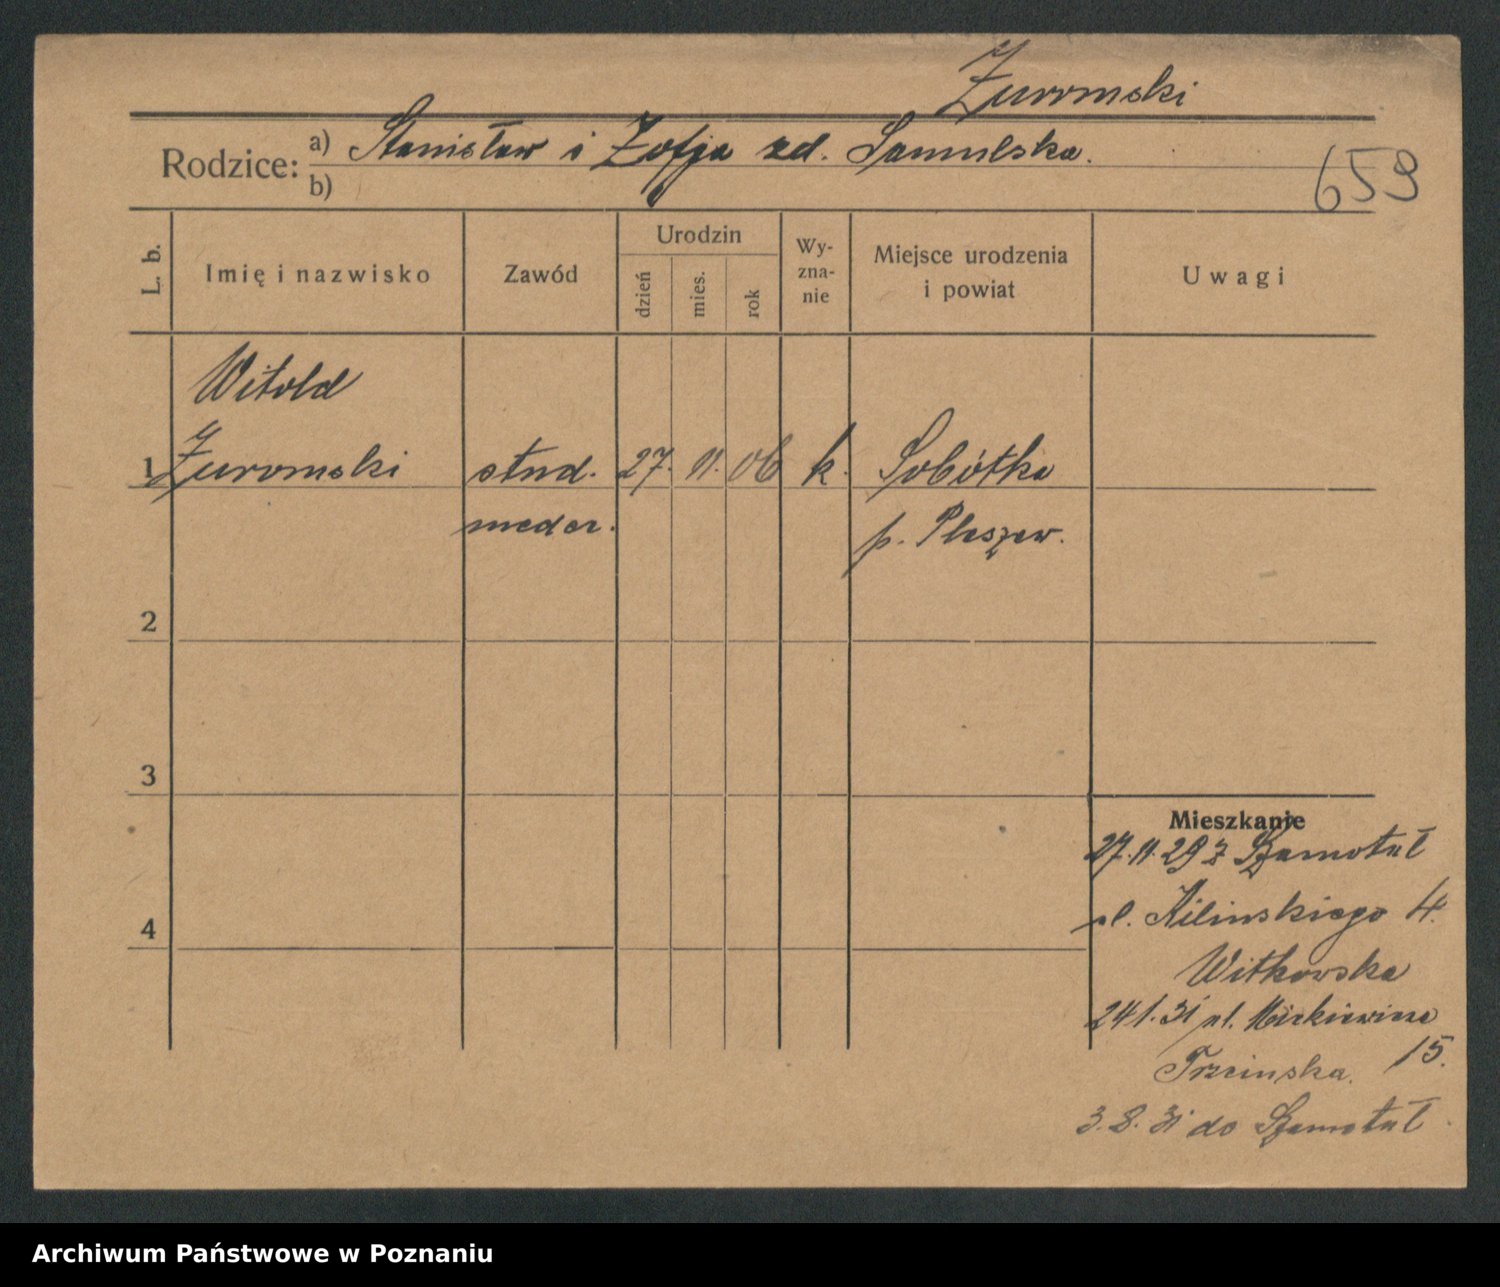 Żuromski
Rodzice: a) Stanisław i Zofja zd. Samulska.
b)
659
L. b.
Imię i nazwisko
Zawód
Urodzin
dzień
mies.
rok
Wy-
zna-
nie
Miejsce urodzenia
i powiat
Uwagi
Witold
1 Żuromski stud. 27. 11. 06 k. Sobótka
p. Pleszew.
2
3
4
Mieszkanie
27.11.29 z Szamotuł
pl. Kilinskiego 4.
Witkowska
24 1. 31 pl. Mickiewicza
15.
Trzcinska.
3. 8. 31 do Szamotuł
Archiwum Państwowe w Poznaniu